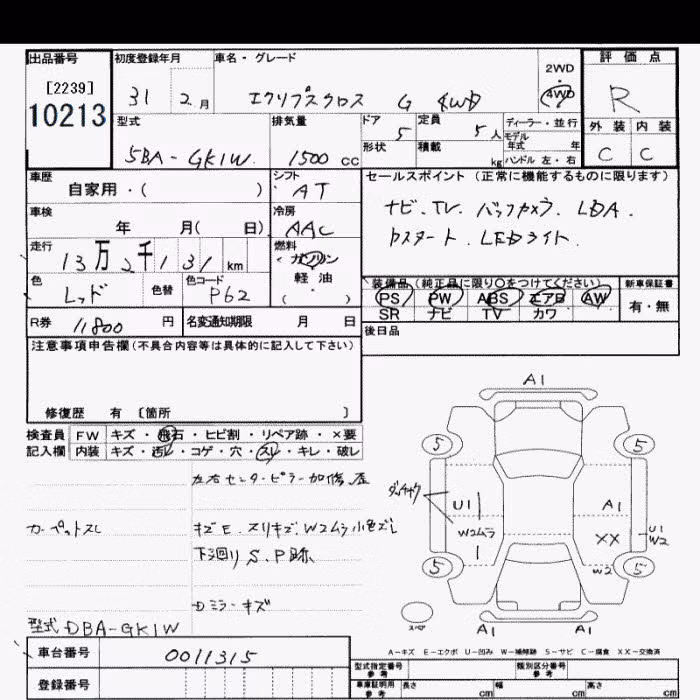 出品番号
[2239]
10213
初度登録年月
31 2月
車名・グレード
エクリプスクロス G 4WD
2WD
・
4WD
評価点
R
外装 内装
C C
型式
5BA-GK1W
排気量
1500 cc
ドア
5
定員
5人
形状
積載
kg
ディーラー・並行
モデル
年式 年
ハンドル 左・右
車歴
自家用・( )
シフト
AT
車検
年 月( 日)
冷房
AAC
走行
13万2千131km
燃料
ガソリン
軽油
( ・ )
色
レッド
色替
色コード
P62
R券 11800 円
名変通知期限 月 日
セールスポイント(正常に機能するものに限ります)
ナビ.TV.バックカメラ.LDA.
Pスタート.LEDライト.
装備品(純正品に限り○をつけてください)
PS PW ABS エアB AW
SR ナビ TV カワ
新車保証書
有・無
後日品
注意事項申告欄(不具合内容等は具体的に記入して下さい)
修復歴 有 〔箇所 〕
検査員
記入欄
FW キズ・飛石・ヒビ割・リペア跡・×要
内装 キズ・汚レ・コゲ・穴・スレ・キレ・破レ
左右センターピラー加修.歪
カーペットスレ
キズE.スリキズ.W2ムラ小色ズレ
下廻りS.P跡
Dミラーキズ
型式 DBA-GK1W
車台番号
0011315
登録番号
A1
5 5
U1
W2ムラ
A1
XX
U1
W2
W2
5 5
スペア
A1 A1
A-キズ E-エクボ U-凹み W-補修跡 S-サビ C-腐食 XX-交換済
型式指定番号
参考
類別区分番号
参考
車庫証明用
参考
長さ cm 幅 cm 高さ cm